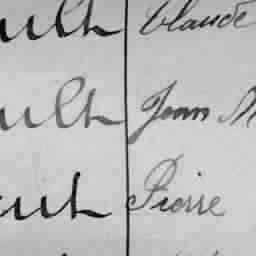 ult Claude
ult Jean M
ult Pierre